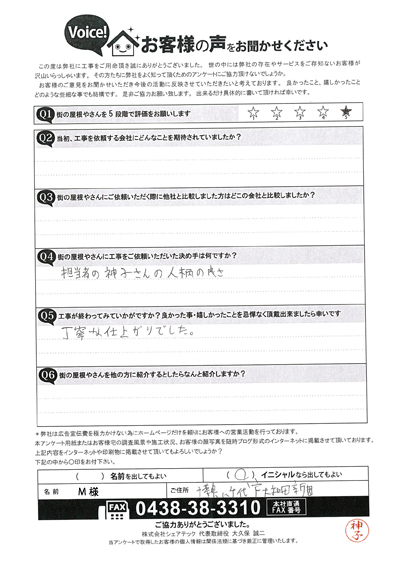 Voice!
お客様の声をお聞かせください
この度は弊社に工事をご用命頂き誠にありがとうございました。世の中には弊社の存在やサービスをご存知ないお客様が
沢山いらっしゃいます。その方たちに弊社をよく知って頂くためのアンケートにご協力頂けないでしょうか。
お客様のご意見をお聞かせいただき今後の活動に反映させていただきたいと考えております。良かったこと、嬉しかったこと
どのような些細な事でも結構です。是非ご協力お願い致します。出来るだけ具体的に書いて頂ければ幸いです。
Q1 街の屋根やさんを5段階で評価をお願いします
☆ ☆ ☆ ☆ ★
1 2 3 4 5
Q2 当初、工事を依頼する会社にどんなことを期待されていましたか？
Q3 街の屋根やさんにご依頼いただく際に他社と比較しました方はどこの会社と比較しましたか？
Q4 街の屋根やさんに工事をご依頼いただいた決め手は何ですか？
担当者の神子さんの人柄の良さ
Q5 工事が終わってみていかがですか？良かった事・嬉しかったことを忌憚なく頂戴出来ましたら幸いです
丁寧な仕上がりでした。
Q6 街の屋根やさんを他の方に紹介するとしたらなんと紹介しますか？
＊弊社は広告宣伝費を極力かけない為にホームページだけを頼りにお客様への営業活動を行っております。
本アンケート用紙またはお客様宅の調査風景や施工状況、お客様の顔写真を随時ブログ形式のインターネットに掲載させて頂いております。
上記内容をインターネットや印刷物に掲載させて頂いてもよろしいでしょうか？
下記の中から〇印をお付下さい。
（ ）名前を出してもよい （〇）イニシャルなら出してもよい
名前 M様 ご住所
FAX 0438-38-3310 本社直通 FAX番号
ご協力ありがとうございました。
株式会社シェアテック 代表取締役 大久保 誠二
当アンケートで取得したお客様の個人情報は関係法規に基づき厳正に管理いたします。
神子